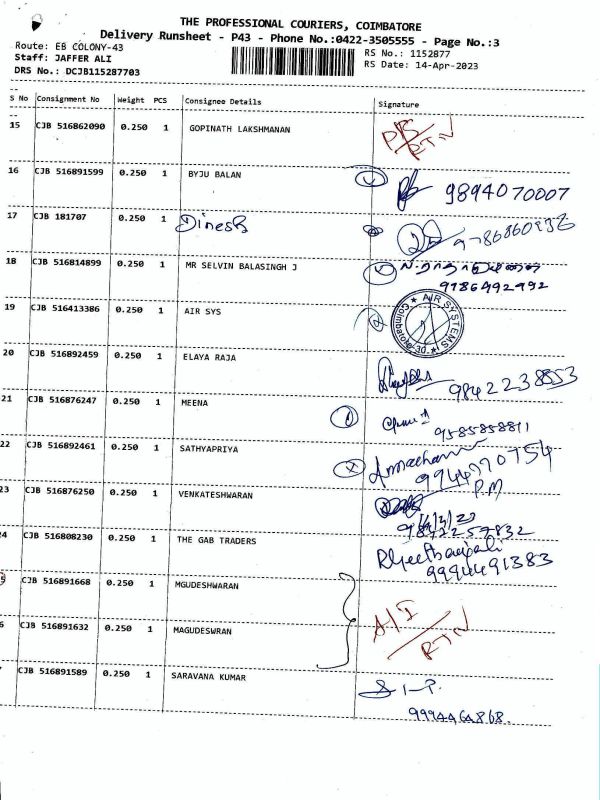 THE PROFESSIONAL COURIERS, COIMBATORE
Delivery Runsheet - P43 - Phone No.:0422-3505555 - Page No.:3
Route: EB COLONY-43 RS No.: 1152877
Staff: JAFFER ALI RS Date: 14-Apr-2023
DRS No.: DCJB115287703
S No Consignment No Weight PCS Consignee Details Signature
15 CJB 516862090 0.250 1 GOPINATH LAKSHMANAN RTN
16 CJB 516891599 0.250 1 BYJU BALAN 9894070007
17 CJB 181707 0.250 1 Dinesh
18 CJB 516814899 0.250 1 MR SELVIN BALASINGH J
9786492992
19 CJB 516413386 0.250 1 AIR SYS AIR SYSTEMS Coimbatore-30
20 CJB 516892459 0.250 1 ELAYA RAJA 9842238553
21 CJB 516876247 0.250 1 MEENA
9585858811
22 CJB 516892461 0.250 1 SATHYAPRIYA
9944770754
P.M
23 CJB 516876250 0.250 1 VENKATESHWARAN
24 CJB 516808230 0.250 1 THE GAB TRADERS
9994491383
CJB 516891668 0.250 1 MGUDESHWARAN
6 CJB 516891632 0.250 1 MAGUDESWRAN RTN
CJB 516891589 0.250 1 SARAVANA KUMAR
9994464868.